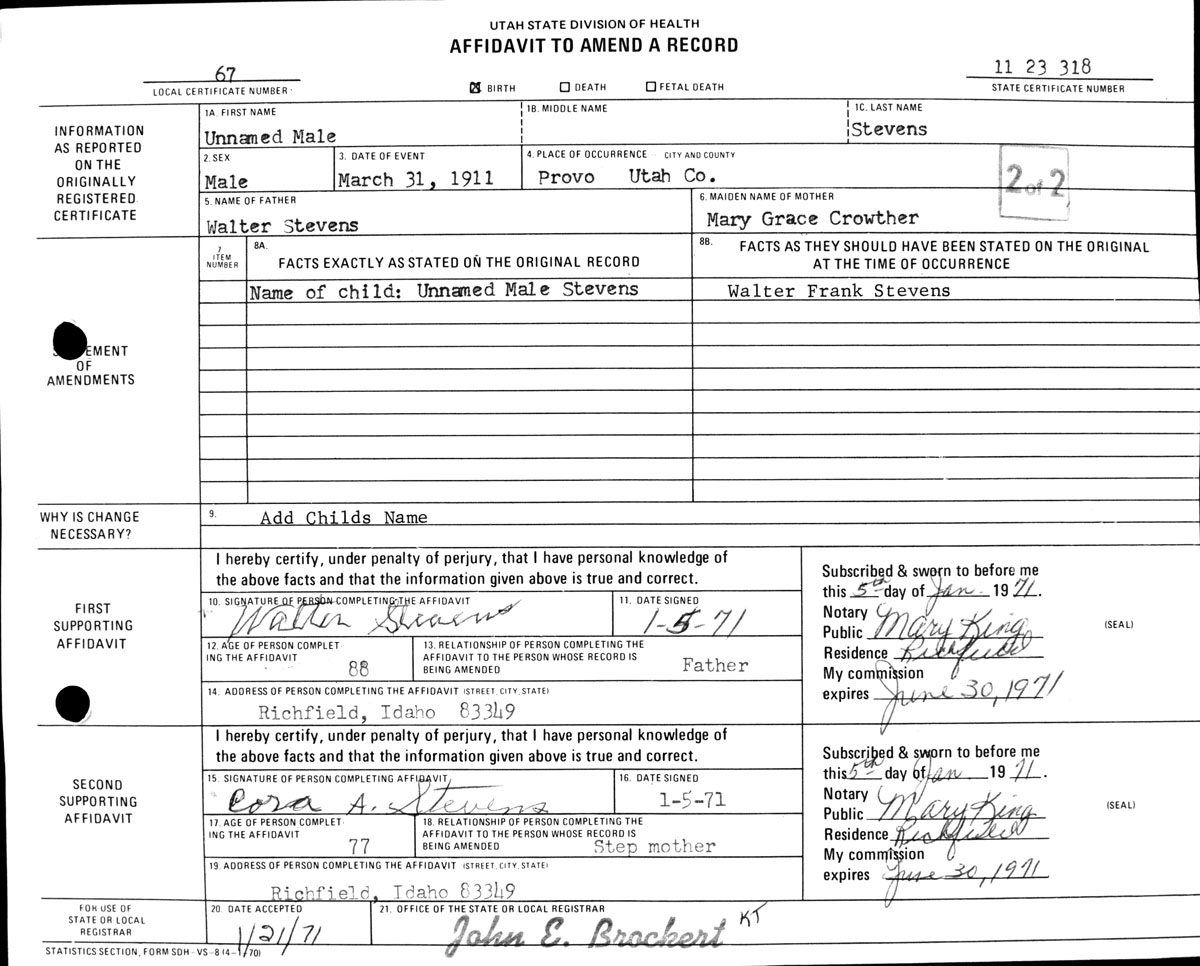 UTAH STATE DIVISION OF HEALTH
AFFIDAVIT TO AMEND A RECORD
67
LOCAL CERTIFICATE NUMBER
☒ BIRTH ☐ DEATH ☐ FETAL DEATH
11 23 318
STATE CERTIFICATE NUMBER
INFORMATION
AS REPORTED
ON THE
ORIGINALLY
REGISTERED
CERTIFICATE
1A. FIRST NAME
Unnamed Male
1B. MIDDLE NAME
1C. LAST NAME
Stevens
2. SEX
Male
3. DATE OF EVENT
March 31, 1911
4. PLACE OF OCCURRENCE CITY AND COUNTY
Provo Utah Co.
2 of 2
5. NAME OF FATHER
Walter Stevens
6. MAIDEN NAME OF MOTHER
Mary Grace Crowther
7
ITEM
NUMBER
8A.
FACTS EXACTLY AS STATED ON THE ORIGINAL RECORD
8B. FACTS AS THEY SHOULD HAVE BEEN STATED ON THE ORIGINAL
AT THE TIME OF OCCURRENCE
Name of child: Unnamed Male Stevens
Walter Frank Stevens
EMENT
OF
AMENDMENTS
WHY IS CHANGE
NECESSARY?
9. Add Childs Name
FIRST
SUPPORTING
AFFIDAVIT
I hereby certify, under penalty of perjury, that I have personal knowledge of
the above facts and that the information given above is true and correct.
10. SIGNATURE OF PERSON COMPLETING THE AFFIDAVIT
Walter Stevens
11. DATE SIGNED
1-5-71
12. AGE OF PERSON COMPLET-
ING THE AFFIDAVIT
88
13. RELATIONSHIP OF PERSON COMPLETING THE
AFFIDAVIT TO THE PERSON WHOSE RECORD IS
BEING AMENDED
Father
14. ADDRESS OF PERSON COMPLETING THE AFFIDAVIT (STREET, CITY, STATE)
Richfield, Idaho 83349
Subscribed & sworn to before me
this 5th day of Jan. 1971.
Notary
Public Mary King
(SEAL)
Residence Richfield
My commission
expires June 30, 1971
SECOND
SUPPORTING
AFFIDAVIT
I hereby certify, under penalty of perjury, that I have personal knowledge of
the above facts and that the information given above is true and correct.
15. SIGNATURE OF PERSON COMPLETING AFFIDAVIT
Cora A. Stevens
16. DATE SIGNED
1-5-71
17. AGE OF PERSON COMPLET-
ING THE AFFIDAVIT
77
18. RELATIONSHIP OF PERSON COMPLETING THE
AFFIDAVIT TO THE PERSON WHOSE RECORD IS
BEING AMENDED
Step mother
19. ADDRESS OF PERSON COMPLETING THE AFFIDAVIT (STREET, CITY, STATE)
Richfield, Idaho 83349
Subscribed & sworn to before me
this 5th day of Jan 1971.
Notary
Public Mary King
(SEAL)
Residence Richfield
My commission
expires June 30, 1971
FOR USE OF
STATE OR LOCAL
REGISTRAR
20. DATE ACCEPTED
1/21/71
21. OFFICE OF THE STATE OR LOCAL REGISTRAR
John E. Brockert KT
STATISTICS SECTION, FORM SDH-VS-8 (4-1/70)